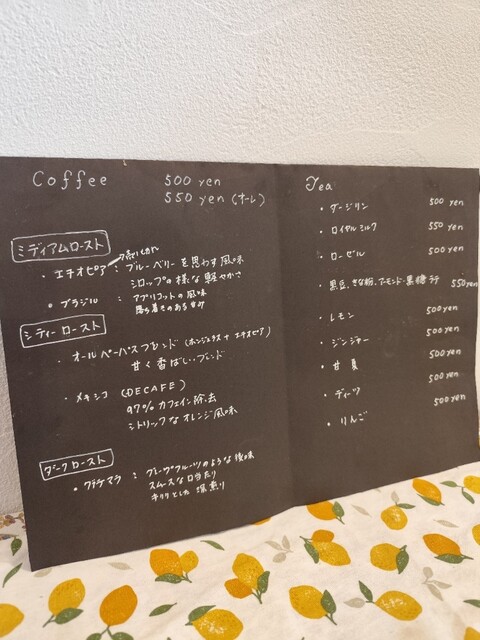 Coffee 500 yen
550 yen (オーレ)
ミディアムロースト
・エチオピア : ブルーベリーを思わす風味
シロップの様な軽やかさ
・ブラジル : アプリコットの風味
落ち着きのある甘み
シティーロースト
・オールパーパスブレンド (ホンジュラス + エチオピア)
甘く香ばしいブレンド
・メキシコ (DECAFE)
97% カフェイン除去
シトリックなオレンジ風味
ダークロースト
・グァテマラ : グレープフルーツのような後味
スムースな口当たり
キリリとした深煎り
Tea
・ダージリン 500 yen
・ロイヤルミルク 550 yen
・ローゼル 500 yen
・黒豆、きな粉、アーモンド・黒糖ラテ 550 yen
・レモン 500 yen
・ジンジャー 500 yen
・甘夏 500 yen
・デーツ 500 yen
・りんご 500 yen